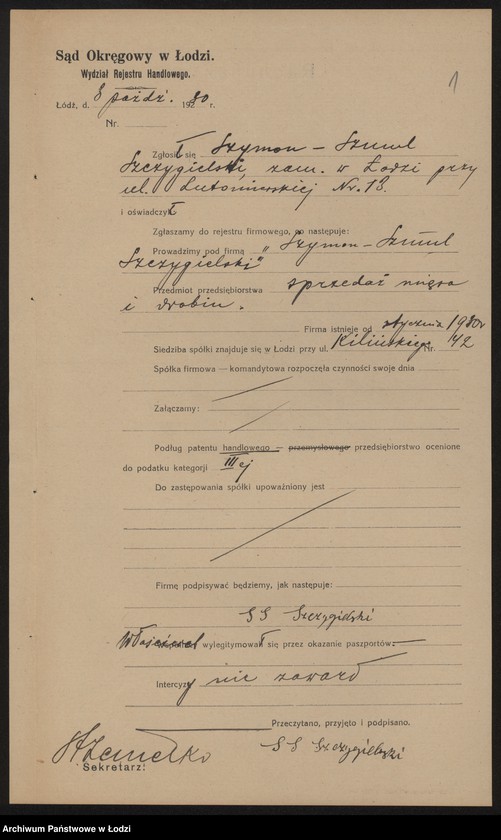 Sąd Okręgowy w Łodzi.
Wydział Rejestru Handlowego.
1
Łódź, d. 8 paźdź. 1930 r.
Nr.
Zgłosił się Szymon - Szmul
Szczygielski, zam. w Łodzi przy
ul. Lutomierskiej Nr. 13.
i oświadczył
Zgłaszamy do rejestru firmowego, co następuje:
Prowadzimy pod firmą „Szymon - Szmul
Szczygielski"
Przedmiot przedsiębiorstwa sprzedaż mięsa
i drobiu.
Firma istnieje od stycznia 1930r
Siedziba spółki znajduje się w Łodzi przy ul. Kilińskiego Nr. 42
Spółka firmowa — komandytowa rozpoczęła czynności swoje dnia
Załączamy:
Podług patentu handlowego — przemysłowego przedsiębiorstwo ocenione
do podatku kategorji III ej
Do zastępowania spółki upoważniony jest
Firmę podpisywać będziemy, jak następuje:
SS Szczygielski
Właściciel wylegitymował się przez okazanie paszportów:
Intercyzy nie zawarł
Przeczytano, przyjęto i podpisano.
SS Szczygielski
Sekretarz:
Archiwum Państwowe w Łodzi